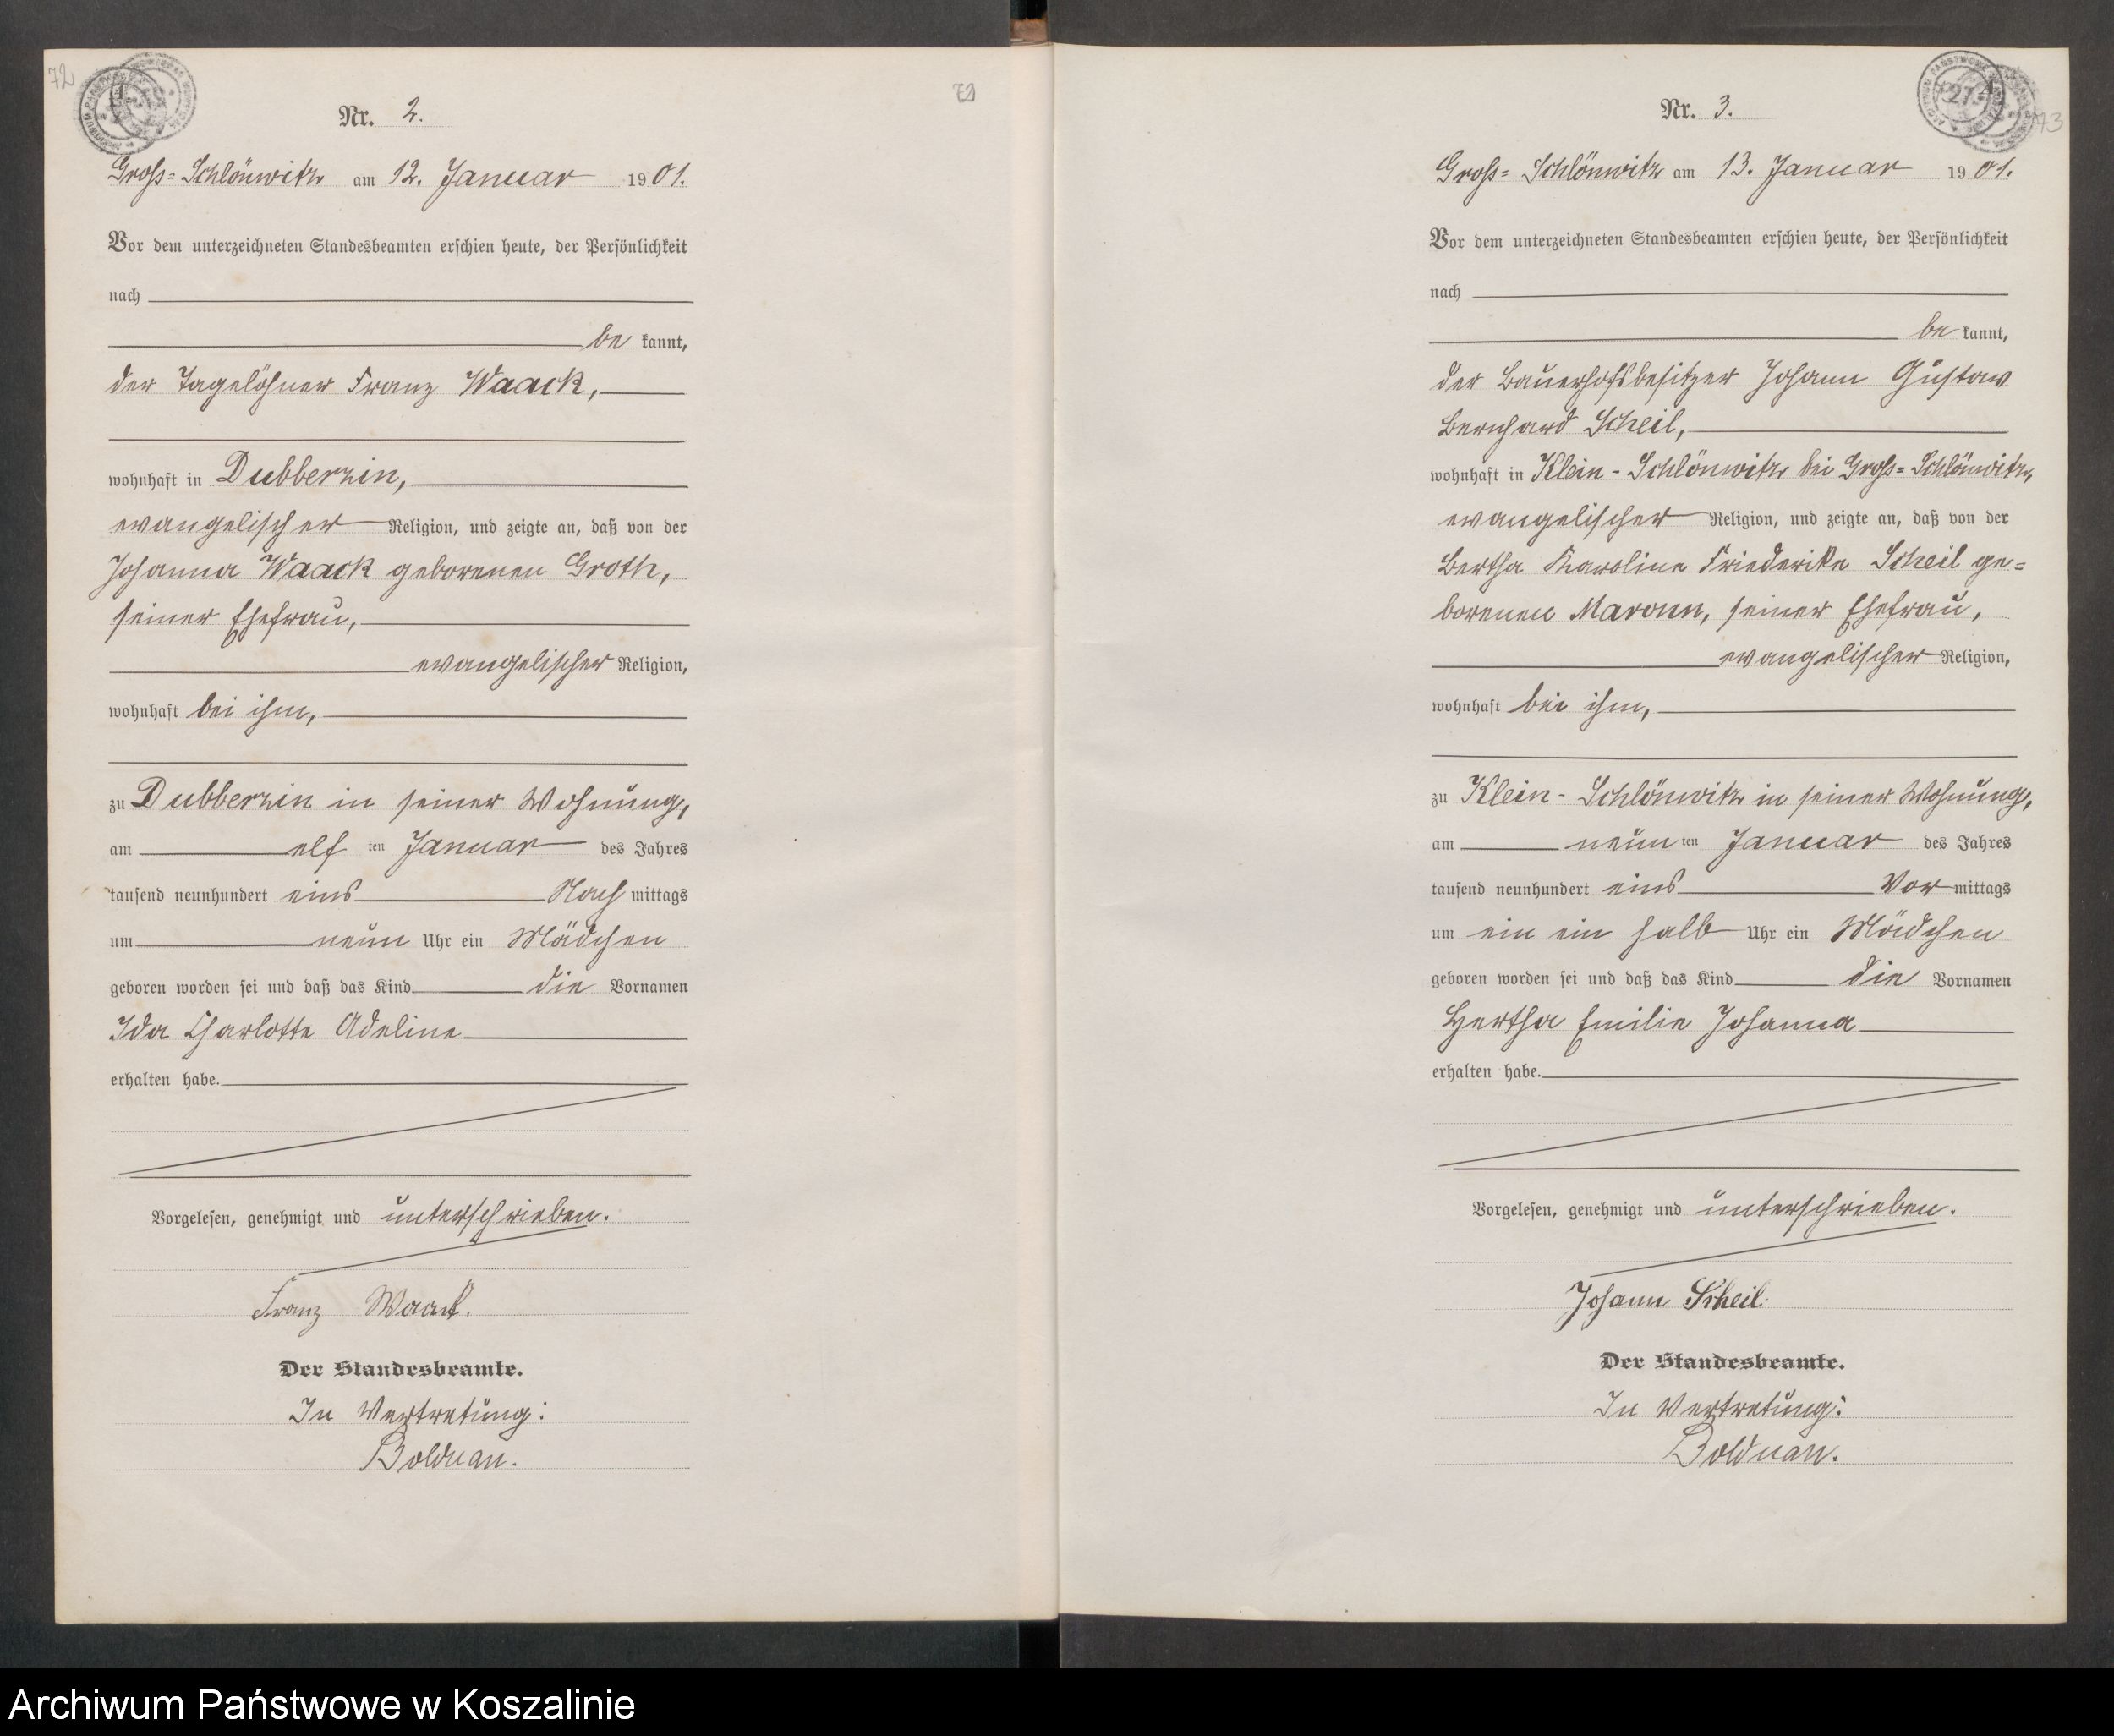 72
72
Nr. 2.
Gross=Schlönwitz am 12. Januar 1901.
Vor dem unterzeichneten Standesbeamten erschien heute, der Persönlichkeit
nach
be kannt,
der Tagelöhner Franz Waack,
wohnhaft in Dubberzin,
evangelischer Religion, und zeigte an, daß von der
Johanna Waack geborenen Groth,
seiner Ehefrau,
evangelischer Religion,
wohnhaft bei ihm,
zu Dubberzin in seiner Wohnung,
am elf ten Januar des Jahres
tausend neunhundert eins Nach mittags
um neun Uhr ein Mädchen
geboren worden sei und daß das Kind die Vornamen
Ida Charlotte Adeline
erhalten habe.
Vorgelesen, genehmigt und unterschrieben.
Franz Waack.
Der Standesbeamte.
In Vertretung:
Bolduan.
73
Nr. 3.
Gross=Schlönwitz am 13. Januar 1901.
Vor dem unterzeichneten Standesbeamten erschien heute, der Persönlichkeit
nach
be kannt,
der Bauerhofsbesitzer Johann Gustav
Bernhard Scheil,
wohnhaft in Klein-Schlönwitz bei Gross=Schlönwitz,
evangelischer Religion, und zeigte an, daß von der
Bertha Karoline Friederike Scheil ge=
borenen Maronn, seiner Ehefrau,
evangelischer Religion,
wohnhaft bei ihm,
zu Klein-Schlönwitz in seiner Wohnung,
am neun ten Januar des Jahres
tausend neunhundert eins Vor mittags
um ein ein halb Uhr ein Mädchen
geboren worden sei und daß das Kind die Vornamen
Hertha Emilie Johanna
erhalten habe.
Vorgelesen, genehmigt und unterschrieben.
Johann Scheil
Der Standesbeamte.
In Vertretung:
Bolduan.
Archiwum Państwowe w Koszalinie